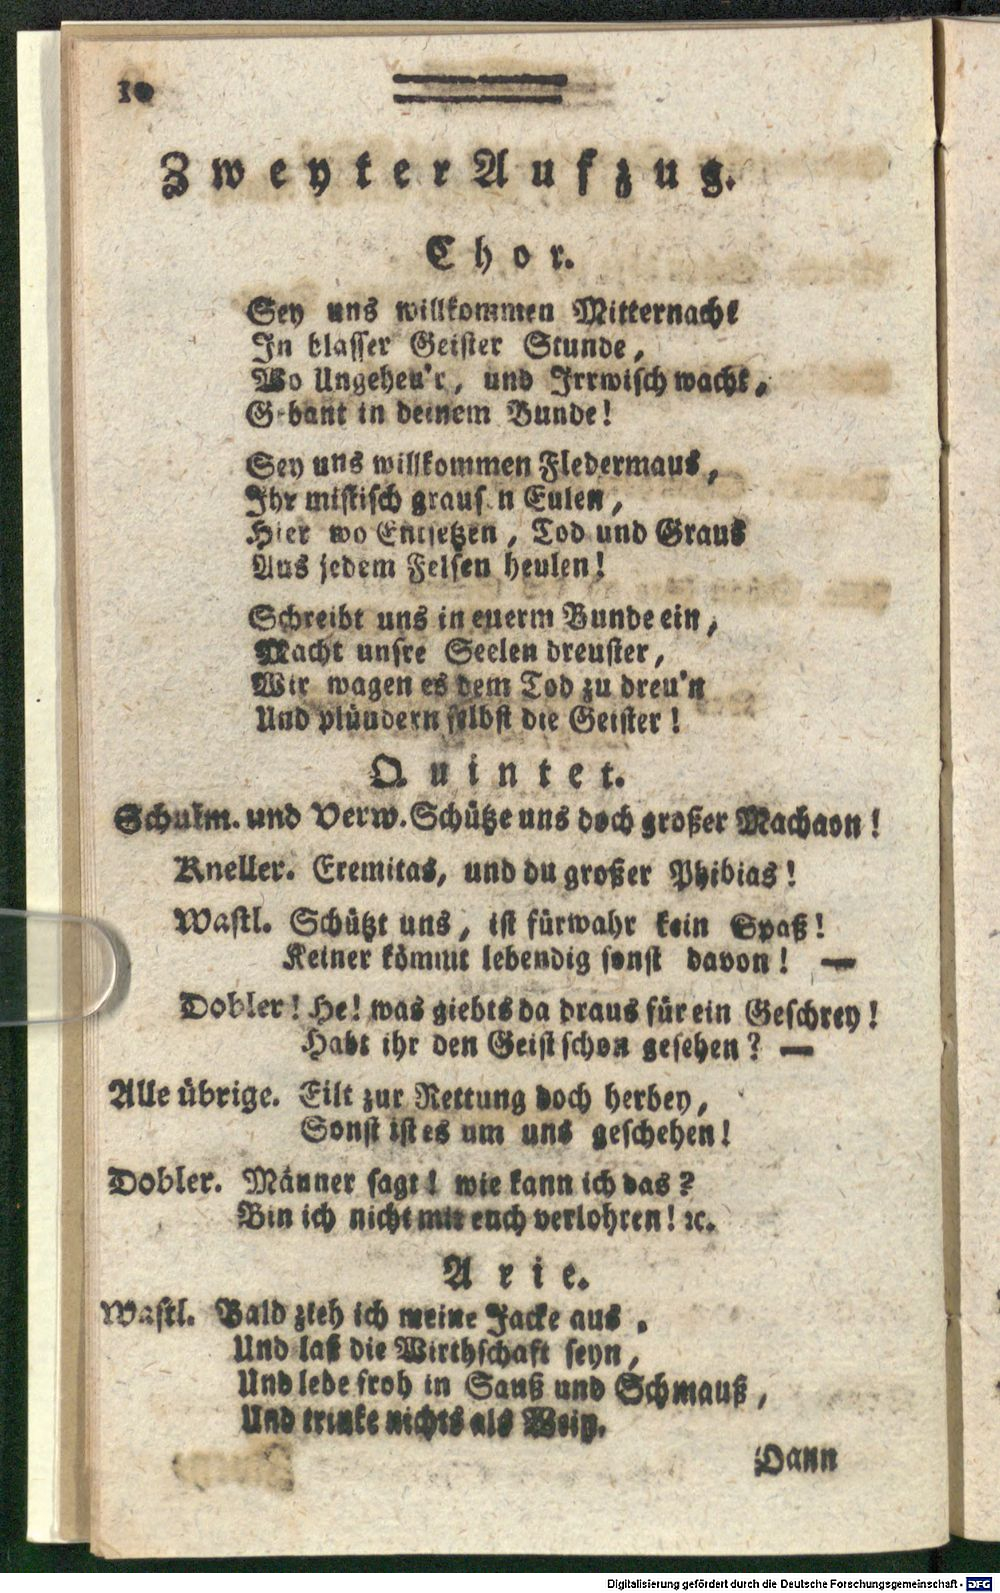 10
Zweyter Aufzug.
Chor.
Sey uns willkommen Mitternacht
In blasser Geister Stunde,
Wo Ungeheu'r, und Irrwisch wacht,
Gebant in deinem Bunde!
Sey uns willkommen Fledermaus,
Ihr mistisch graus'n Eulen,
Hier wo Entsetzen, Tod und Graus
Aus jedem Felsen heulen!
Schreibt uns in euerm Bunde ein,
Macht unsre Seelen dreuster,
Wir wagen es dem Tod zu dreu'n
Und plündern selbst die Geister!
Quintet.
Schulm. und Verw. Schütze uns doch großer Machaon!
Kneller. Eremitas, und du großer Phibias!
Wastl. Schützt uns, ist fürwahr kein Spaß!
Keiner kömmt lebendig sonst davon! —
Dobler! He! was giebts da draus für ein Geschrey!
Habt ihr den Geist schon gesehen? —
Alle übrige. Eilt zur Rettung doch herbey,
Sonst ist es um uns geschehen!
Dobler. Männer sagt! wie kann ich das?
Bin ich nicht mit euch verlohren! ꝛc.
Arie.
Wastl. Bald zieh ich meine Jacke aus,
Und laß die Wirthschaft seyn,
Und lebe froh in Sauß und Schmauß,
Und trinke nichts als Wein.
Dann
Digitalisierung gefördert durch die Deutsche Forschungsgemeinschaft - DFG